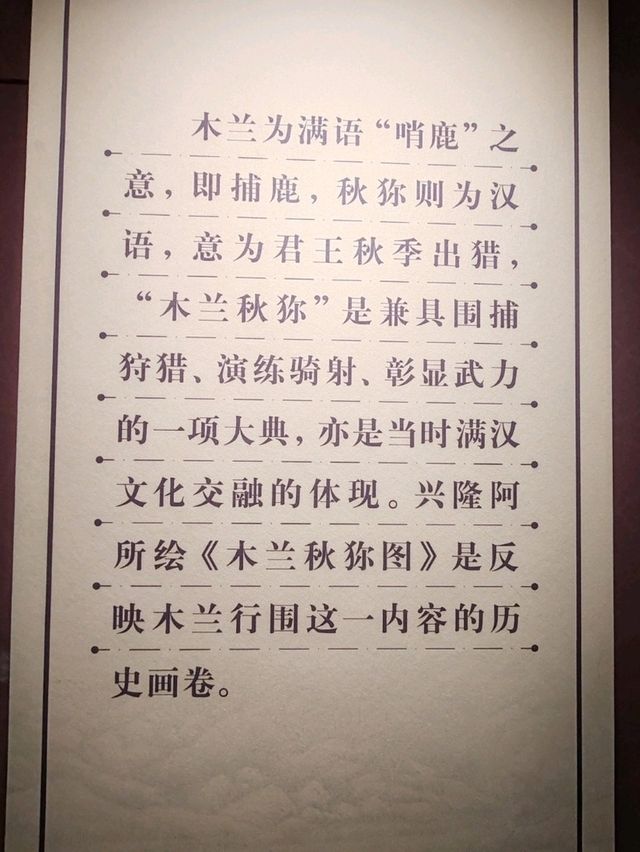 木兰为满语“哨鹿”之
意，即捕鹿，秋狝则为汉
语，意为君王秋季出猎，
“木兰秋狝”是兼具围捕
狩猎、演练骑射、彰显武力
的一项大典，亦是当时满汉
文化交融的体现。兴隆阿
所绘《木兰秋狝图》是反
映木兰行围这一内容的历
史画卷。